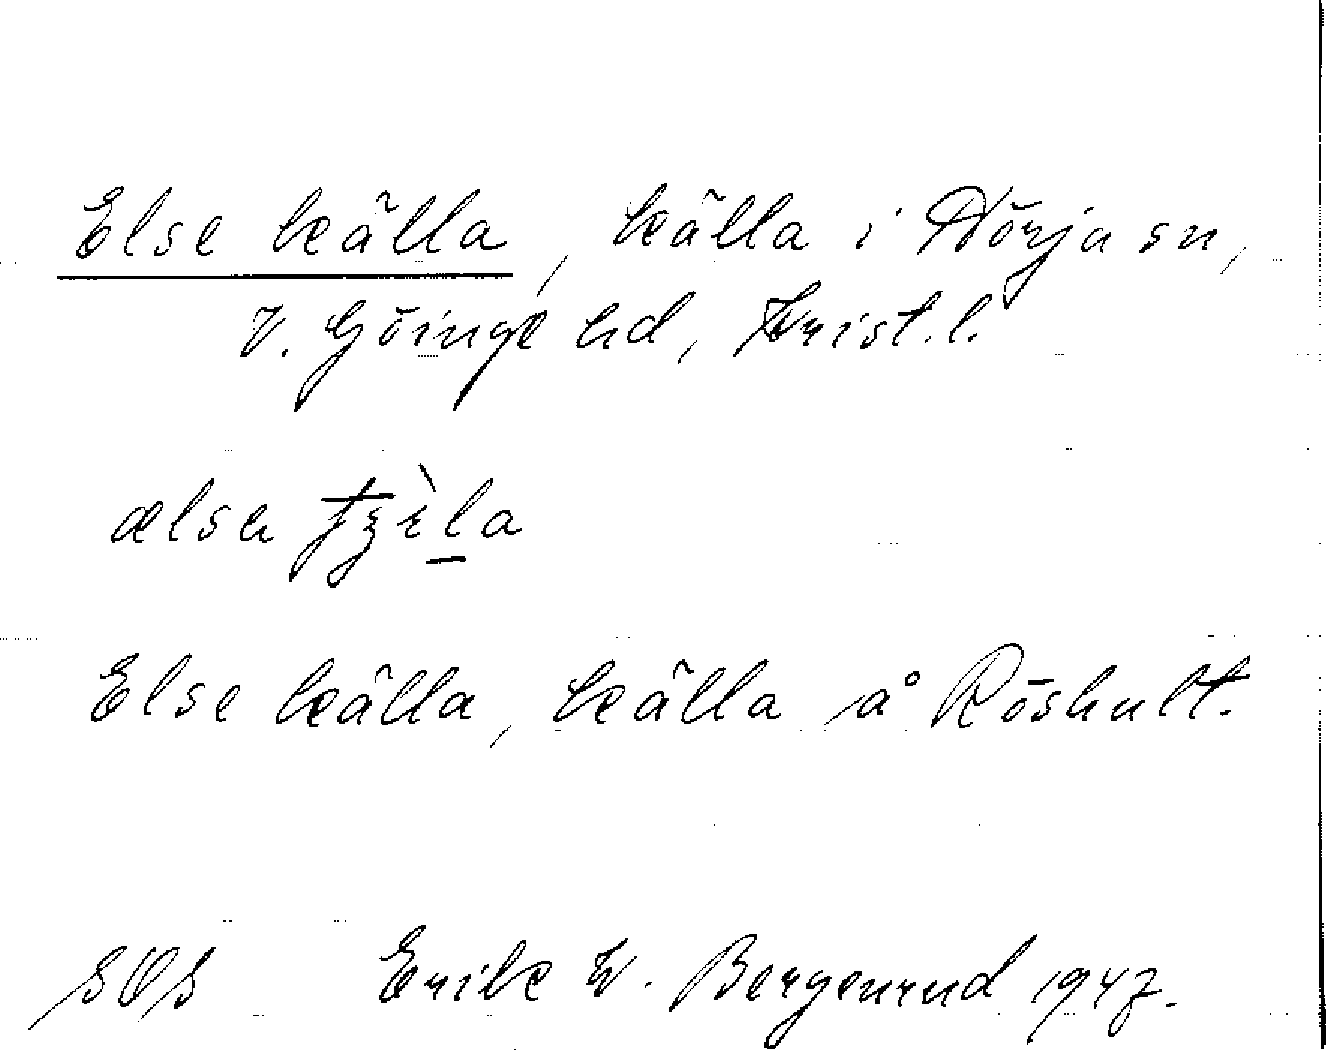 Else källa, källa i Nörja sn,
V. Göinge hd, Krist. l.
ælsa
Else källa, källa å Röshult.
SOS Erik W. Bergenrud 1947.